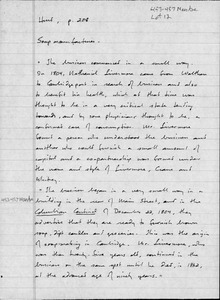 453-457 Main Str.
Lot 12
Hurd, p. 208
Soap manufacture.
• The business commenced in a small way.
In 1804, Nathaniel Livermore came from Waltham
to Cambridgeport in search of business and also
to benefit his health, which at that time was
thought to be in a very critical state
and, by some physicians thought to be, a
confirmed case of consumption. Mr. Livermore
found a person who understood the business and
another who could furnish a small amount of
capital and a copartnership was formed under
the name and style of Livermore, Crane and
Whitney.
• The business began in a very small way in a
building in the rear of Main Street, and in the
Columbian Centinel of December 22, 1804, they
advertise that they are ready to furnish brown
soap, dipt candles and groceries. This was the origin
of soapmaking in Cambridge. Mr. Livermore, who
was then twenty-five years old, continued in the
business on the same spot until he died, in 1862,
at the advanced age of ninety years.